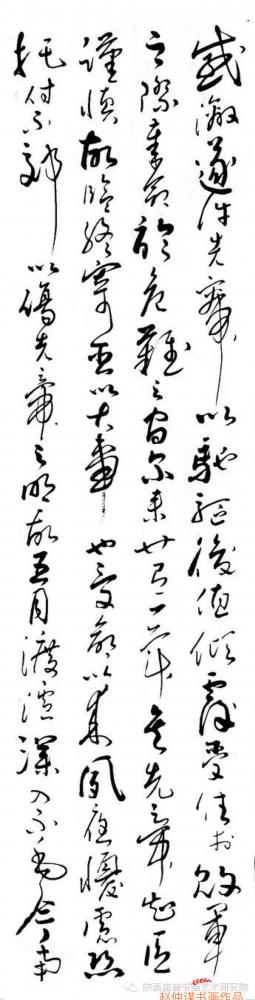 感激遂許先帝以馳驅後值傾覆受任於敗軍
之際奉命於危難之間尔來廿有一年矣先帝知臣
謹慎故臨終寄臣以大事也受命以來夙夜憂慮恐
托付不效以傷先帝之明故五月渡瀘深入不毛今南
陕西盛唐书画艺术研究院
赵仲谋书画作品